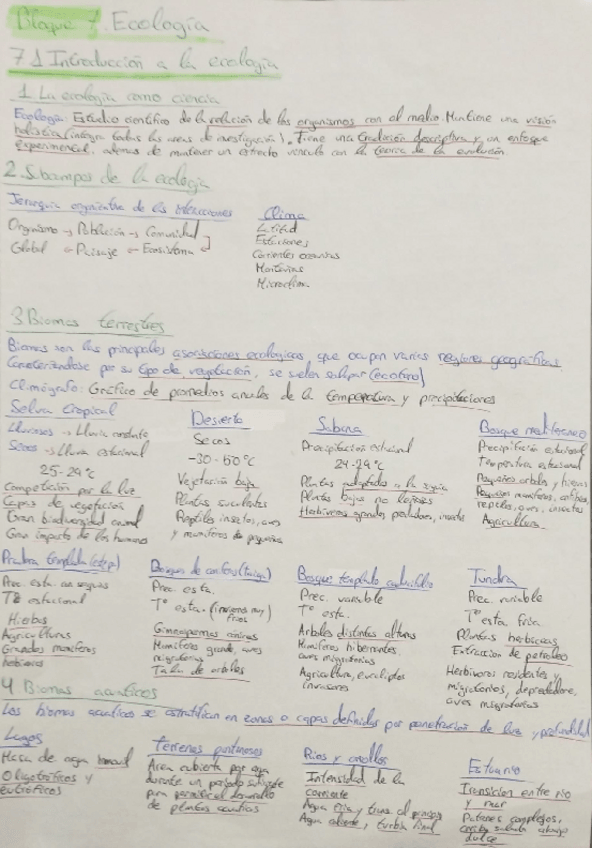 Bloque 7. Ecología
7.1 Introducción a la ecología
1. La ecología como ciencia
Ecología: Estudio científico de la relación de los organismos con el medio. Mantiene una visión
holística (integra todas las areas de investigación). Tiene una tradición descriptiva y un enfoque
experimental. ademas de mantener un estrecho vinculo con la teoría de la evolución
2. Subcampos de la ecología
Jerarquia organizativa de las interacciones
Organismo → Población → Comunidad
Global ← Paisaje ← Ecosistema
Clima
Latitud
Estaciones
Corrientes oceanicas
Montañas
Microclima.
3. Biomas terrestres
Biomas son las principales asociaciones ecologicas, que ocupan varias regiones geográficas
Caracterizandose por su tipo de vegetación, se suelen solapar (ecotono)
Climógrafo: Gráfico de promedios anuales de la temperatura y precipitaciones
Selva tropical
Lluviosos → Lluvia constante
Secos → Lluvia estacional
25-29°C
Competición por la luz
Capas de vegetación
Gran biodiversidad animal
Gran impacto de los humanos
Desierto
Secos
-30 - 50°C
Vejetación baja
Plantas suculentas
Reptiles insectos, aves
y mamiferos de pequeños
Sabana
Precipitación estacional
24-29°C
Plantas adaptadas a la sequia
Plantas bajas no leñosas
Herbivoros grandes, depredadores, insectos
Bosque mediterraneo
Precipitación estacional
Temperatura estacional
Pequeños arboles y hierbas
Pequeños mamiferos, anfibios,
reptiles, aves, insectos
Agricultura
Pradera templada (estepa)
Prec. esta
Tª estacional
Hierbas
Agriculturas
Grandes mamiferos
Bosque de coniferas (taiga)
Prec. esta.
Tº esta. (inviernos muy
frios)
Gimnospermas
Mamiferos grande, aves
migratorias
Tala de arboles
Bosque templado caducifolio
Prec. variable
Tº esta.
Arboles distintas alturas
Mamiferos hibernantes,
aves migratorias
Agricultura, eucaliptos
invasores
Tundra
Prec. variable
Tº esta fria
Plantas herbaceas
Extraccion de petroleo
Herbivoros residentes y
migratorios, depredadores,
aves migratorias
4. Biomas acuaticos
Los biomas acuaticos se estratifican en zonas o capas definidas por penetración de luz y profundidad
Lagos
Masa de agua
Oligotróficos y
eutróficos
Terrenos pantanosos
Area cubierta por agua
durante un periodo suficiente
para permitir el desarrollo
de plantas acuatias
Rios y arrollos
Intensidad de la
corriente
Agua fria y trans al principio
Agua caliente, turbia final
Estuario
Transicion entre rio
y mar
Patrones complejos,
dulce